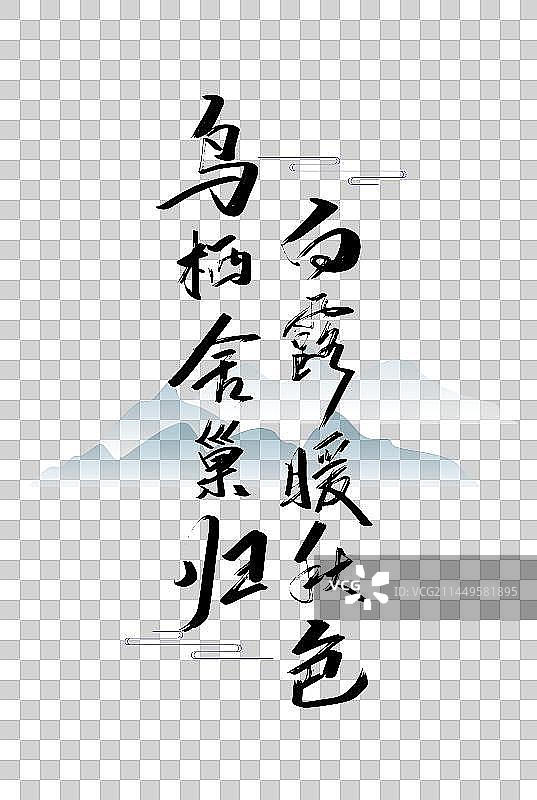 白露暖秋色
鸟栖舍巢归
VCG
ID: VCG211449581895